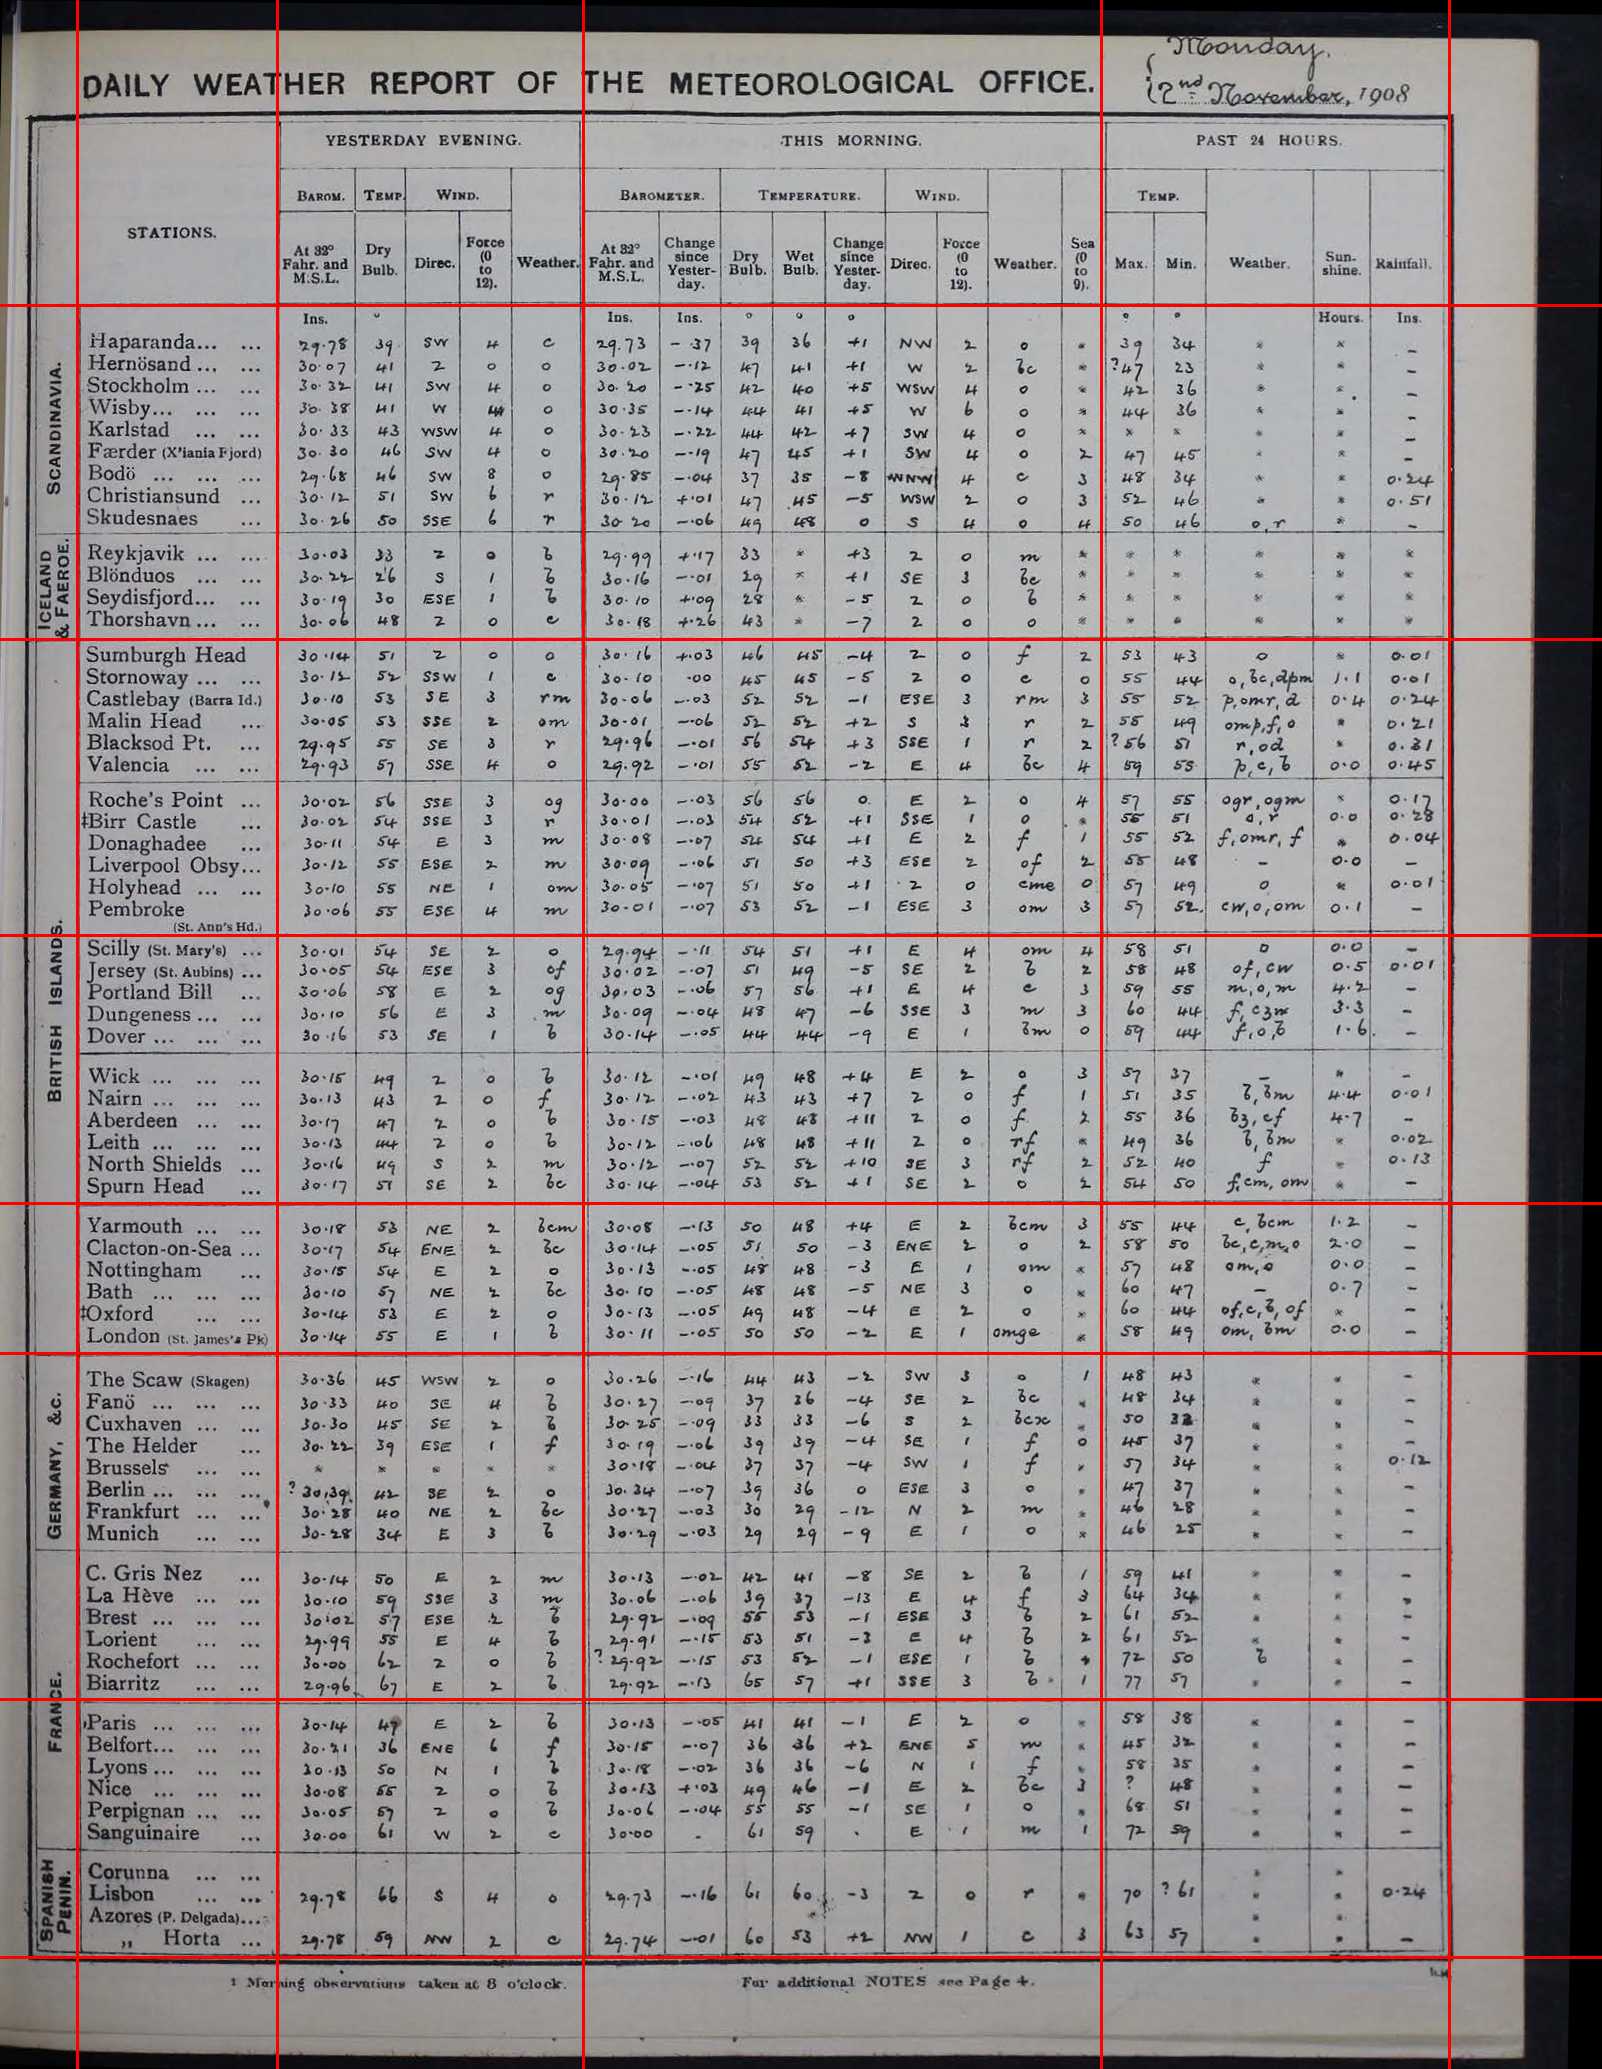 Monday.
DAILY WEATHER REPORT OF THE METEOROLOGICAL OFFICE. 2nd November, 1908
YESTERDAY EVENING. THIS MORNING. PAST 24 HOURS.
STATIONS. BAROM. TEMP. WIND. Weather. BAROMETER. TEMPERATURE. WIND. Weather. Sea (0 to 9). TEMP. Weather. Sunshine. Rainfall.
At 32° Fahr. and M.S.L. Dry Bulb. Direc. Force (0 to 12). At 32° Fahr. and M.S.L. Change since Yesterday. Dry Bulb. Wet Bulb. Change since Yesterday. Direc. Force (0 to 12). Max. Min.
Ins. ° Ins. Ins. ° ° ° ° ° Hours. Ins.
SCANDINAVIA.
Haparanda... ... 29.78 39 SW 4 c 29.73 -.37 39 36 +1 NW 2 o * 39 34 * * -
Hernösand ... ... 30.07 41 Z 0 o 30.02 -.12 47 41 +1 W 2 bc * ?47 23 * * -
Stockholm ... ... 30.32 41 SW 4 o 30.20 -.25 42 40 +5 WSW 4 o * 42 36 * * -
Wisby... ... ... 30.38 41 W 4 o 30.35 -.14 44 41 +5 W 6 o * 44 36 * * -
Karlstad ... ... 30.33 43 WSW 4 o 30.23 -.22 44 42 +7 SW 4 o * * * * * -
Færder (X'iania Fjord) 30.30 46 SW 4 o 30.20 -.19 47 45 +1 SW 4 o 2 47 45 * * -
Bodö ... ... ... 29.68 46 SW 8 o 29.85 -.04 37 35 -8 WNW 4 c 3 48 34 * * 0.24
Christiansund ... 30.12 51 SW 6 r 30.12 +.01 47 45 -5 WSW 2 o 3 52 46 * * 0.51
Skudesnaes ... 30.26 50 SSE 6 r 30.20 -.06 49 48 0 S 4 o 4 50 46 o,r * -
ICELAND & FAEROE.
Reykjavik ... ... 30.03 33 Z 0 b 29.99 +.17 33 * +3 Z 0 m * * * * * *
Blönduos ... ... 30.22 26 S 1 b 30.16 -.01 29 * +1 SE 3 bc * * * * * *
Seydisfjord... ... 30.19 30 ESE 1 b 30.10 +.09 28 * -5 Z 0 b * * * * * *
Thorshavn ... ... 30.06 48 Z 0 c 30.18 +.26 43 * -7 Z 0 o * * * * * *
BRITISH ISLANDS.
Sumburgh Head 30.14 51 Z 0 o 30.16 +.03 46 45 -4 Z 0 f 2 53 43 o * 0.01
Stornoway ... ... 30.12 52 SSW 1 c 30.10 .00 45 45 -5 Z 0 c 0 55 44 o,bc,dpm 1.1 0.01
Castlebay (Barra Id.) 30.10 53 SE 3 rm 30.06 -.03 52 52 -1 ESE 3 rm 3 55 52 p,omr,d 0.4 0.24
Malin Head ... 30.05 53 SSE 2 om 30.01 -.06 52 52 +2 S 3 r 2 55 49 omp,f,o * 0.21
Blacksod Pt. ... 29.95 55 SE 3 r 29.96 -.01 56 54 +3 SSE 1 r 2 ?56 51 r,od * 0.31
Valencia ... ... 29.93 57 SSE 4 o 29.92 -.01 55 52 -2 E 4 bc 4 59 55 p,c,b 0.0 0.45
Roche's Point ... 30.02 56 SSE 3 og 30.00 -.03 56 56 0. E 2 o 4 57 55 ogr,ogm * 0.17
‡Birr Castle ... 30.02 54 SSE 3 r 30.01 -.03 54 52 +1 SSE 1 o * 56 51 o,r 0.0 0.28
Donaghadee ... 30.11 54 E 3 m 30.08 -.07 54 54 +1 E 2 f 1 55 52 f,omr,f * 0.04
Liverpool Obsy... 30.12 55 ESE 2 m 30.09 -.06 51 50 +3 ESE 2 of 2 55 48 - 0.0 -
Holyhead ... ... 30.10 55 NE 1 om 30.05 -.07 51 50 +1 Z 0 cme 0 57 49 o * 0.01
Pembroke 30.06 55 ESE 4 m 30.01 -.07 53 52 -1 ESE 3 om 3 57 52 cw,o,om 0.1 -
(St. Ann's Hd.)
Scilly (St. Mary's) ... 30.01 54 SE 2 o 29.94 -.11 54 51 +1 E 4 om 4 58 51 o 0.0 -
Jersey (St. Aubins) ... 30.05 54 ESE 3 of 30.02 -.07 51 49 -5 SE 2 b 2 58 48 of,cw 0.5 0.01
Portland Bill ... 30.06 58 E 2 og 30.03 -.06 57 56 +1 E 4 c 3 59 55 m,o,m 4.2 -
Dungeness ... ... 30.10 56 E 3 m 30.09 -.04 48 47 -6 SSE 3 m 3 60 44 f,czm 3.3 -
Dover ... ... ... 30.16 53 SE 1 b 30.14 -.05 44 44 -9 E 1 bm 0 59 44 f,o,b 1.6 -
Wick ... ... ... 30.15 49 Z 0 b 30.12 -.01 49 48 +4 E 2 o 3 57 37 - * -
Nairn ... ... ... 30.13 43 Z 0 f 30.12 -.02 43 43 +7 Z 0 f 1 51 35 b,bm 4.4 0.01
Aberdeen ... ... 30.17 47 Z 0 b 30.15 -.03 48 48 +11 Z 0 f 2 55 36 bz,cf 4.7 -
Leith ... ... ... 30.13 44 Z 0 b 30.12 -.06 48 48 +11 Z 0 rf * 49 36 b,bm * 0.02
North Shields ... 30.16 49 S 2 m 30.12 -.07 52 52 +10 SE 3 rf 2 52 40 f * 0.13
Spurn Head ... 30.17 51 SE 2 bc 30.14 -.04 53 52 +1 SE 2 o 2 54 50 f,cm,om * -
Yarmouth ... ... 30.18 53 NE 2 bcm 30.08 -.13 50 48 +4 E 2 bcm 3 55 44 c,bcm 1.2 -
Clacton-on-Sea ... 30.17 54 ENE 2 bc 30.14 -.05 51 50 -3 ENE 2 o 2 58 50 bc,c,m,o 2.0 -
Nottingham ... 30.15 54 E 2 o 30.13 -.05 48 48 -3 E 1 om * 57 48 om,o 0.0 -
Bath ... ... ... 30.10 57 NE 2 bc 30.10 -.05 48 48 -5 NE 3 o * 60 47 - 0.7 -
‡Oxford ... ... 30.14 53 E 2 o 30.13 -.05 49 48 -4 E 2 o * 60 44 of,c,b,of * -
London (St. James's Pk) 30.14 55 E 1 b 30.11 -.05 50 50 -2 E 1 omge * 58 49 om,bm 0.0 -
GERMANY, &c.
The Scaw (Skagen) 30.36 45 WSW 2 o 30.26 -.16 44 43 -2 SW 3 o 1 48 43 * * -
Fanö ... ... ... 30.33 40 SE 4 b 30.27 -.09 37 36 -4 SE 2 bc * 48 34 * * -
Cuxhaven ... ... 30.30 45 SE 2 b 30.25 -.09 33 33 -6 S 2 bcx * 50 32 * * -
The Helder ... 30.22 39 ESE 1 f 30.19 -.06 39 39 -4 SE 1 f 0 45 37 * * -
Brussels ... ... * * * * * 30.18 -.04 37 37 -4 SW 1 f * 57 34 * * 0.12
Berlin ... ... ... ?30.39 42 SE 2 o 30.34 -.07 39 36 0 ESE 3 o * 47 37 * * -
Frankfurt ... ... 30.28 40 NE 2 bc 30.27 -.03 30 29 -12 N 2 m * 46 28 * * -
Munich ... ... 30.28 34 E 3 b 30.29 -.03 29 29 -9 E 1 o * 46 25 * * -
FRANCE.
C. Gris Nez ... 30.14 50 E 2 m 30.13 -.02 42 41 -8 SE 2 b 1 59 41 * * -
La Hève ... ... 30.10 59 SSE 3 m 30.06 -.06 39 37 -13 E 4 f 3 64 34 * * -
Brest ... ... ... 30.02 57 ESE 2 b 29.92 -.09 55 53 -1 ESE 3 b 2 61 52 * * -
Lorient ... ... 29.99 55 E 4 b 29.91 -.15 53 51 -3 E 4 b 2 61 52 * * -
Rochefort ... ... 30.00 62 Z 0 b ?29.92 -.15 53 52 -1 ESE 1 b * 72 50 b * -
Biarritz ... ... 29.96 67 E 2 b 29.92 -.13 65 57 +1 SSE 3 b 1 77 57 * * -
Paris ... ... ... 30.14 47 E 2 b 30.13 -.05 41 41 -1 E 2 o * 58 38 * * -
Belfort... ... ... 30.21 36 ENE 6 f 30.15 -.07 36 36 +2 ENE 5 m * 45 32 * * -
Lyons ... ... ... 30.13 50 N 1 b 30.18 -.02 36 36 -6 N 1 f * 58 35 * * -
Nice ... ... ... 30.08 55 Z 0 b 30.13 +.03 49 46 -1 E 2 bc 3 ? 48 * * -
Perpignan ... ... 30.05 57 Z 0 b 30.06 -.04 55 55 -1 SE 1 o * 68 51 * * -
Sanguinaire ... 30.00 61 W 2 c 30.00 . 61 59 . E 1 m 1 72 59 * * -
SPANISH PENIN.
Corunna ... ... * *
Lisbon ... ... 29.78 66 S 4 o 29.73 -.16 61 60 -3 Z 0 r * 70 ?61 * * 0.24
Azores (P. Delgada)... * *
„ Horta ... 29.78 59 NW 2 c 29.74 -.01 60 53 +2 NW 1 c 3 63 57 * * -
‡ Morning observations taken at 8 o'clock. For additional NOTES see Page 4.